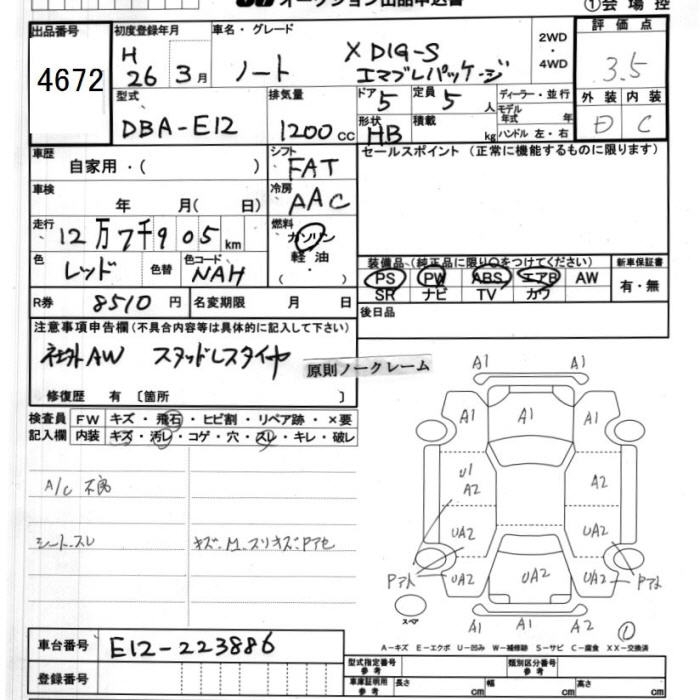 オークション出品申込書
①会場控
出品番号 4672
初度登録年月 H 26 3月
車名・グレード ノート X DIG-S エマブレパッケージ
2WD・4WD
評価点 3.5
外装 D 内装 C
型式 DBA-E12
排気量 1200cc
ドア 5 定員 5人
形状 HB 積載 kg
ディーラー・並行
モデル年式 年
ハンドル 左・右
車歴 自家用・( )
シフト FAT
セールスポイント (正常に機能するものに限ります)
車検 年 月( 日)
冷房 AAC
走行 12万7千905km
燃料 ガソリン 軽油 ・
色 レッド 色替 色コード NAH
装備品(純正品に限り○をつけてください)
PS PW ABS エアB AW
SR ナビ TV カワ
新車保証書 有・無
R券 8510円 名変期限 月 日
後日品
注意事項申告欄(不具合内容等は具体的に記入して下さい)
社外AW スタッドレスタイヤ
原則ノークレーム
修復歴 有 〔箇所 〕
検査員記入欄
FW キズ・飛石・ヒビ割・リペア跡・×要
内装 キズ・汚レ・コゲ・穴・スレ・キレ・破レ
A/C 不良
シートスレ
キズ・M.スリキズ・Pアセ
A1 A1
A1 A1 A1
U1 A2 A2
UA2 UA2
Pアト UA2 UA2 UA2 Pアト
スペア
A1 A1 A2
①
A-キズ E-エクボ U-凹み W-補修跡 S-サビ C-腐食 XX-交換済
車台番号 E12-223886
登録番号
型式指定番号 参考
類別区分番号 参考
車庫証明用 参考 長さ cm 幅 cm 高さ cm